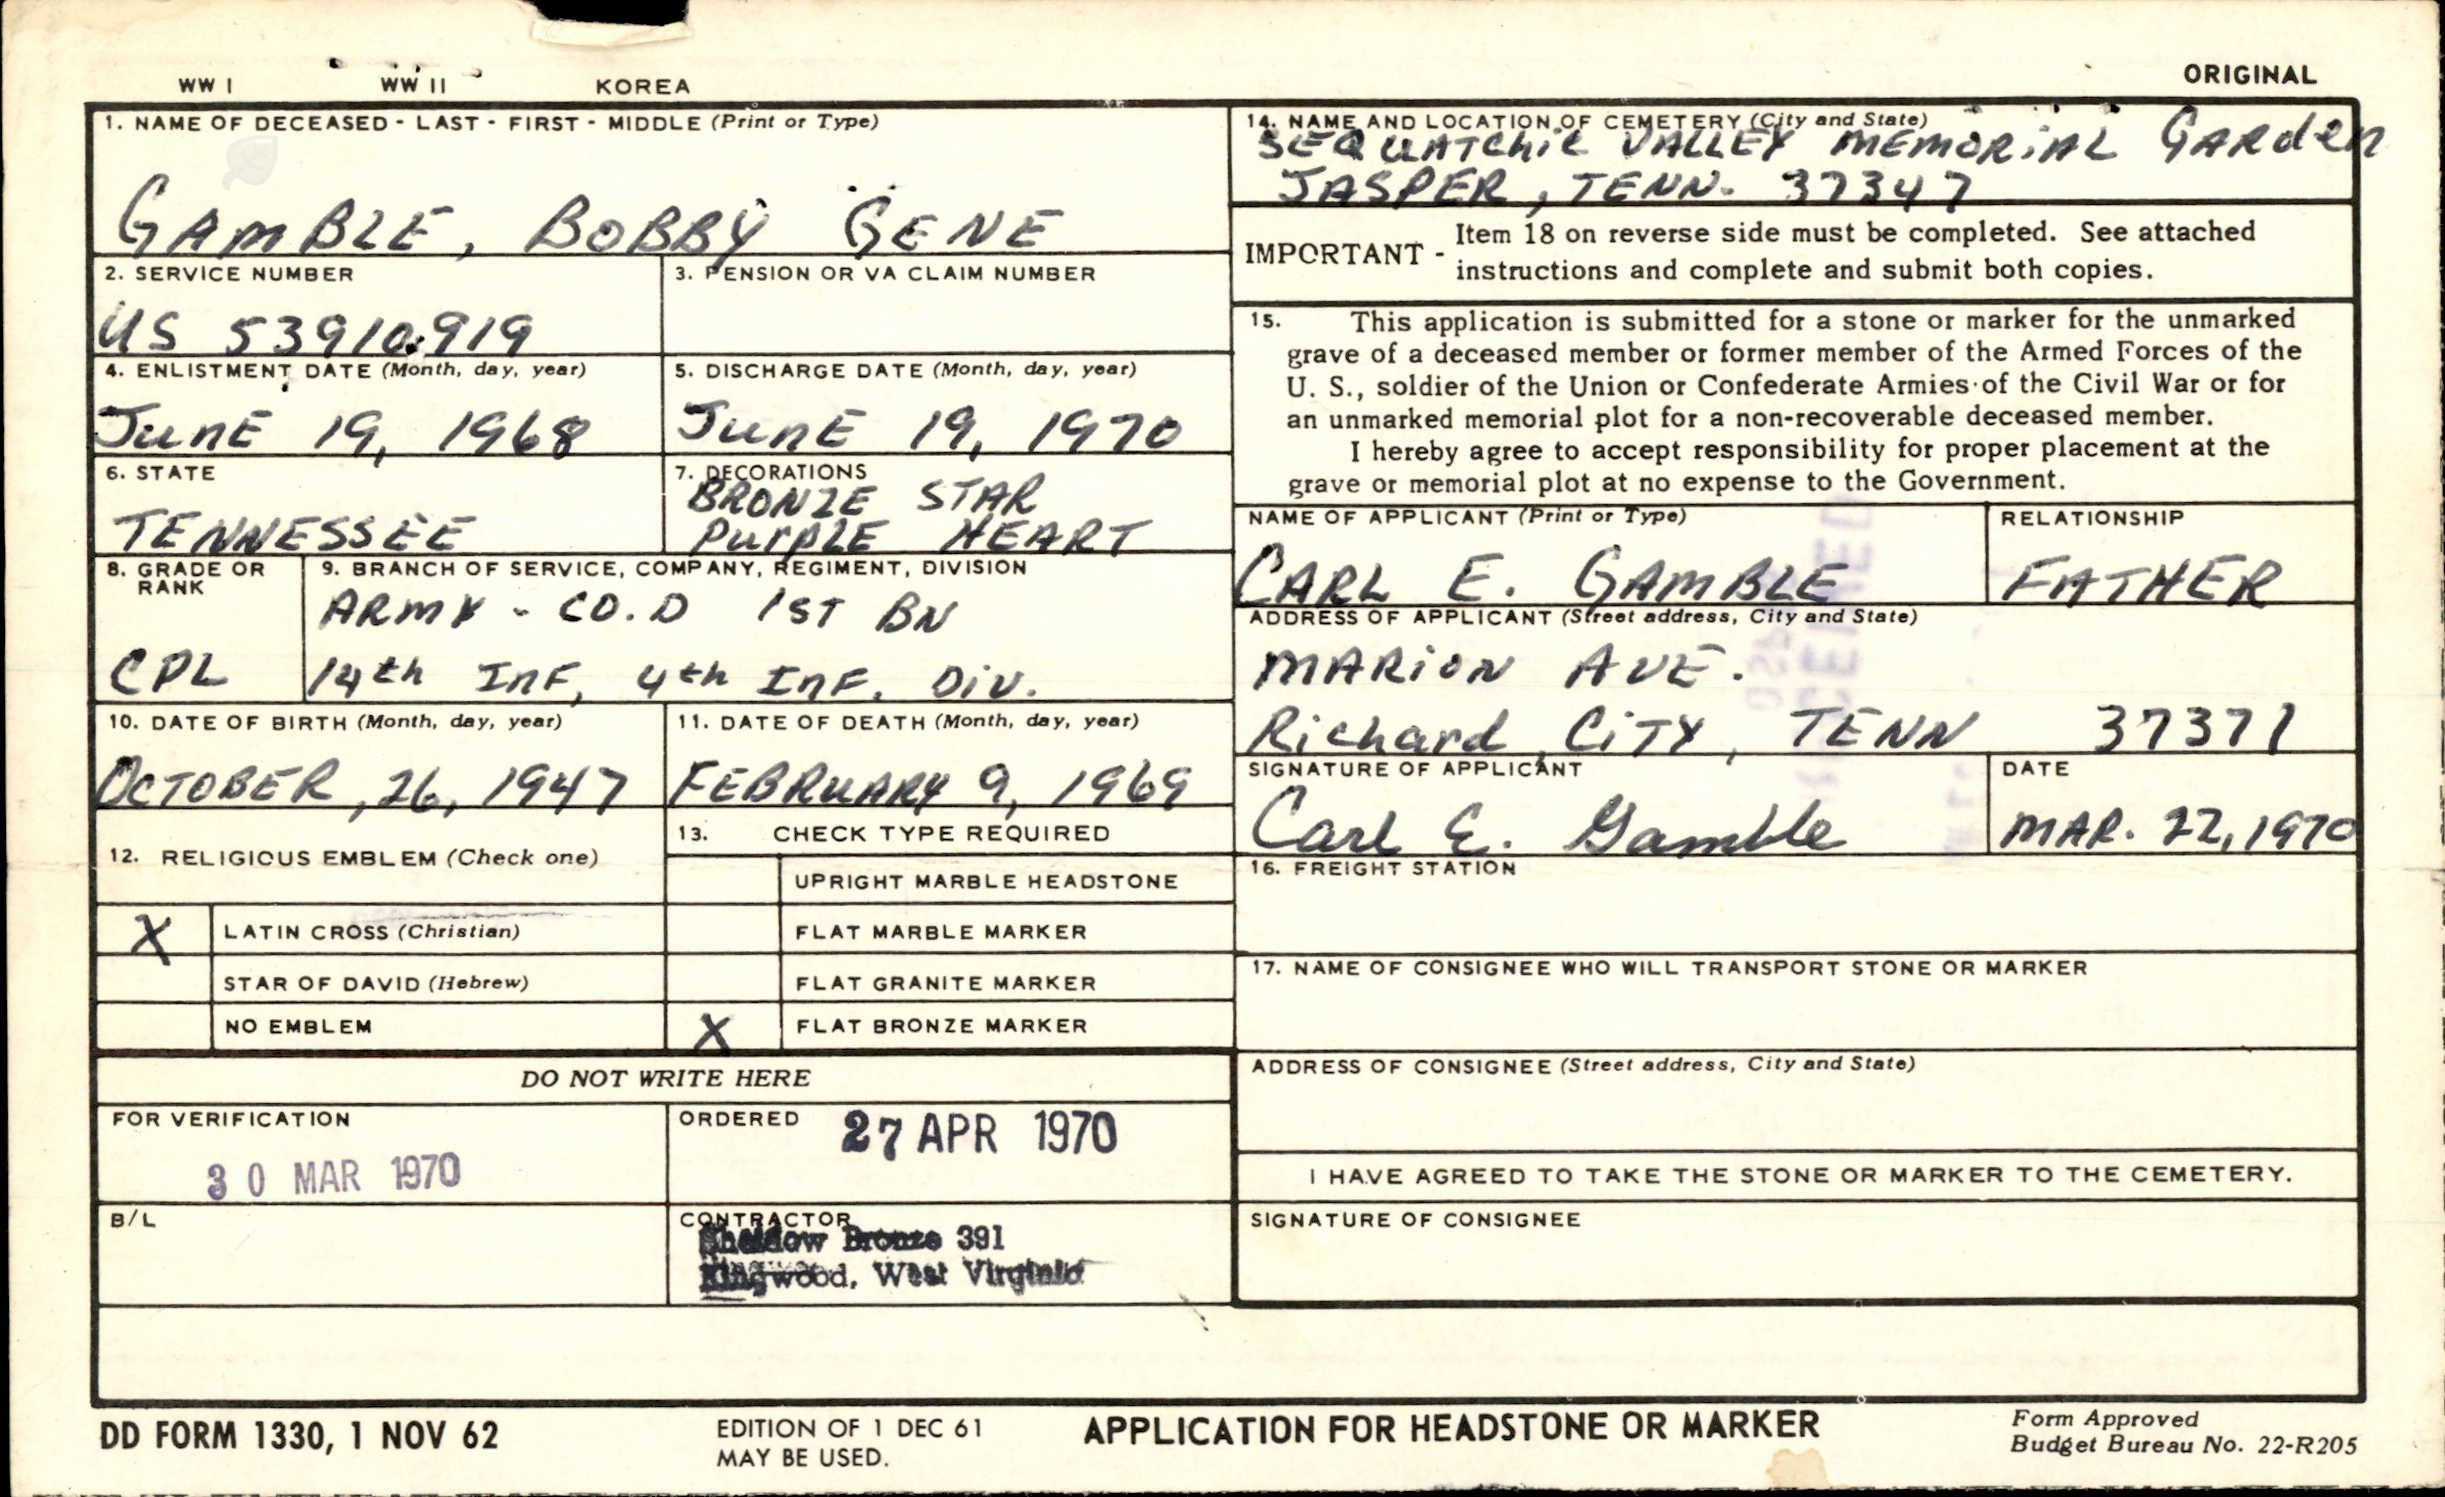 WW I WW II KOREA ORIGINAL
1. NAME OF DECEASED - LAST - FIRST - MIDDLE (Print or Type)
GAMBLE, BOBBY GENE
2. SERVICE NUMBER
US 53910919
3. PENSION OR VA CLAIM NUMBER
4. ENLISTMENT DATE (Month, day, year)
JUNE 19, 1968
5. DISCHARGE DATE (Month, day, year)
JUNE 19, 1970
6. STATE
TENNESSEE
7. DECORATIONS
BRONZE STAR
PURPLE HEART
8. GRADE OR
RANK
CPL
9. BRANCH OF SERVICE, COMPANY, REGIMENT, DIVISION
ARMY - CO. D 1ST BN
14th INF, 4th INF. DIV.
10. DATE OF BIRTH (Month, day, year)
OCTOBER, 26, 1947
11. DATE OF DEATH (Month, day, year)
FEBRUARY 9, 1969
12. RELIGIOUS EMBLEM (Check one)
X LATIN CROSS (Christian)
STAR OF DAVID (Hebrew)
NO EMBLEM
13. CHECK TYPE REQUIRED
UPRIGHT MARBLE HEADSTONE
FLAT MARBLE MARKER
FLAT GRANITE MARKER
X FLAT BRONZE MARKER
DO NOT WRITE HERE
FOR VERIFICATION
30 MAR 1970
ORDERED 27 APR 1970
B/L
CONTRACTOR
Bronze 391
Kingwood, West Virginia
14. NAME AND LOCATION OF CEMETERY (City and State)
SEQUATCHIE VALLEY MEMORIAL GARDEN
JASPER, TENN. 37347
IMPORTANT - Item 18 on reverse side must be completed. See attached
instructions and complete and submit both copies.
15. This application is submitted for a stone or marker for the unmarked
grave of a deceased member or former member of the Armed Forces of the
U. S., soldier of the Union or Confederate Armies of the Civil War or for
an unmarked memorial plot for a non-recoverable deceased member.
I hereby agree to accept responsibility for proper placement at the
grave or memorial plot at no expense to the Government.
NAME OF APPLICANT (Print or Type)
CARL E. GAMBLE
RELATIONSHIP
FATHER
ADDRESS OF APPLICANT (Street address, City and State)
MARION AVE.
Richard City, TENN 37371
SIGNATURE OF APPLICANT
Carl E. Gamble
DATE
MAR. 22, 1970
16. FREIGHT STATION
17. NAME OF CONSIGNEE WHO WILL TRANSPORT STONE OR MARKER
ADDRESS OF CONSIGNEE (Street address, City and State)
I HAVE AGREED TO TAKE THE STONE OR MARKER TO THE CEMETERY.
SIGNATURE OF CONSIGNEE
DD FORM 1330, 1 NOV 62
EDITION OF 1 DEC 61
MAY BE USED.
APPLICATION FOR HEADSTONE OR MARKER
Form Approved
Budget Bureau No. 22-R205